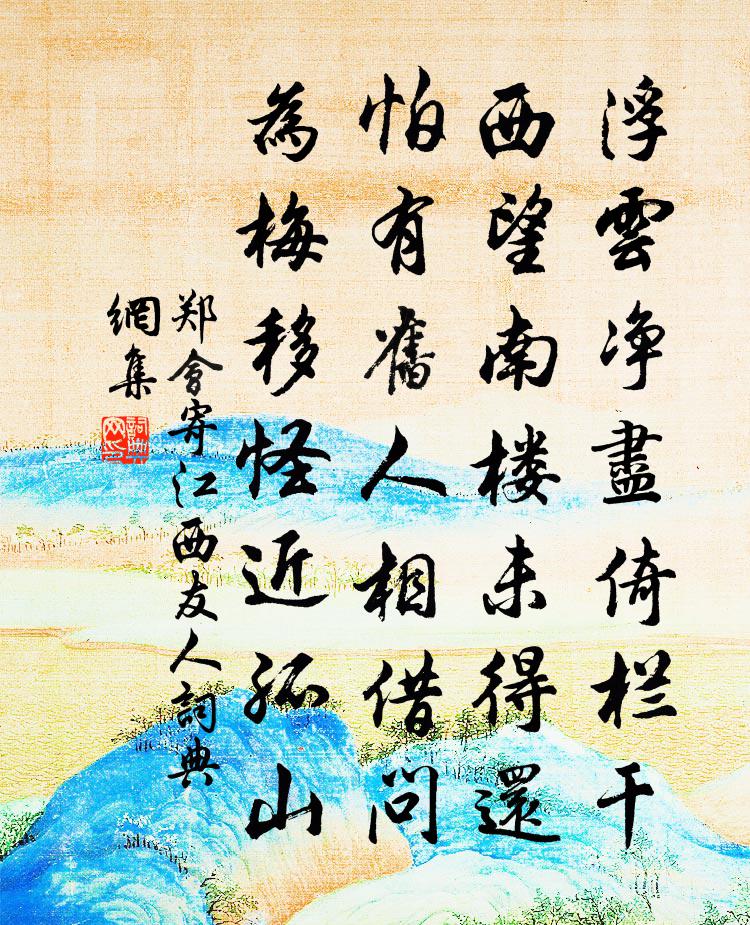 浮雲净盡倚栏干
西望南楼未得還
怕有舊人相借問
為梅移怪近孤山
郑會寄江西友人詞典
網集
詞典網印